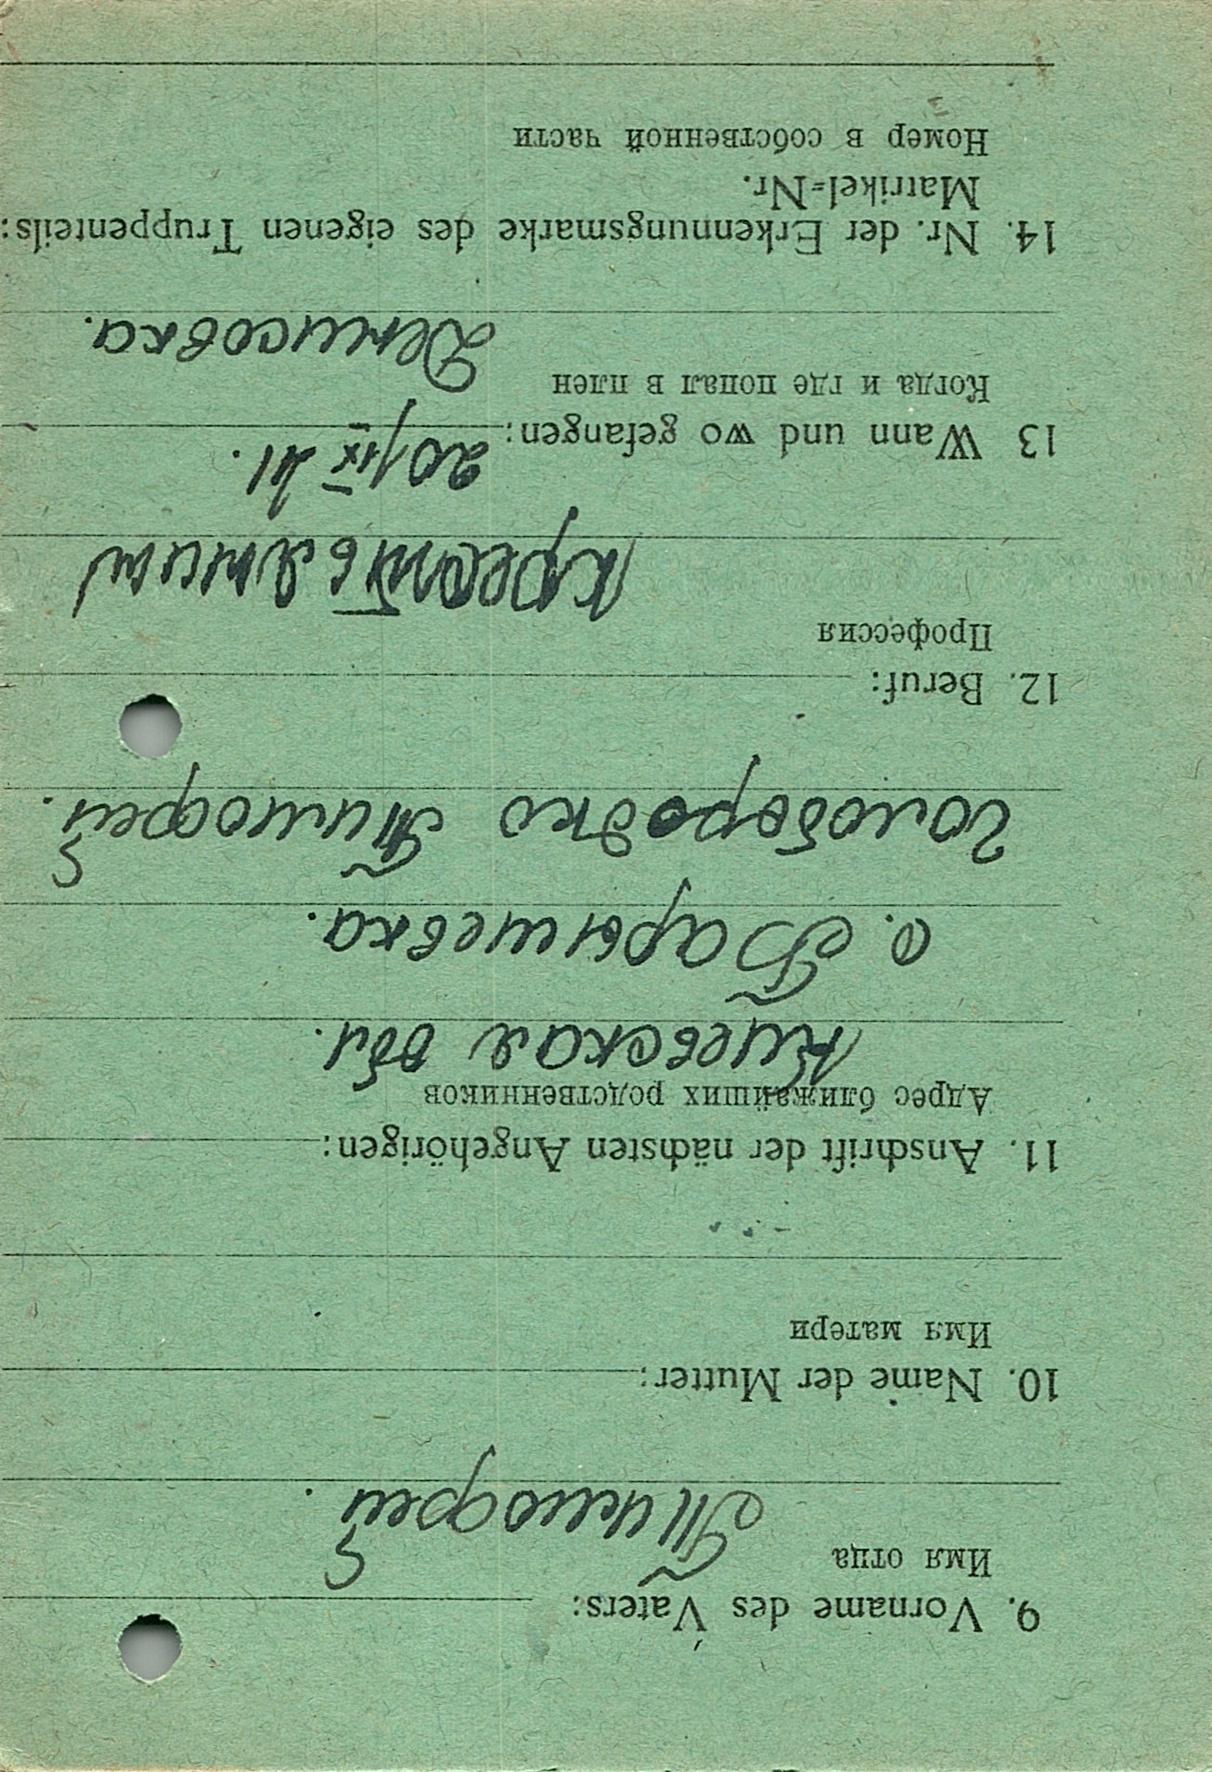 9. Vorname des Vaters:
Имя отца
Тимофей.
10. Name der Mutter:
Имя матери
11. Anschrift der nächsten Angehörigen:
Адрес ближайших родственников
Киевская обл.
с. Барышевка.
Голобородко Тимофей.
12. Beruf:
Профессия
крестьянин
13 Wann und wo gefangen:
20/IX 41.
Когда и где попал в плен
Денисовка.
14. Nr. der Erkennungsmarke des eigenen Truppenteils:
Matrikel-Nr.
Номер в собственной части